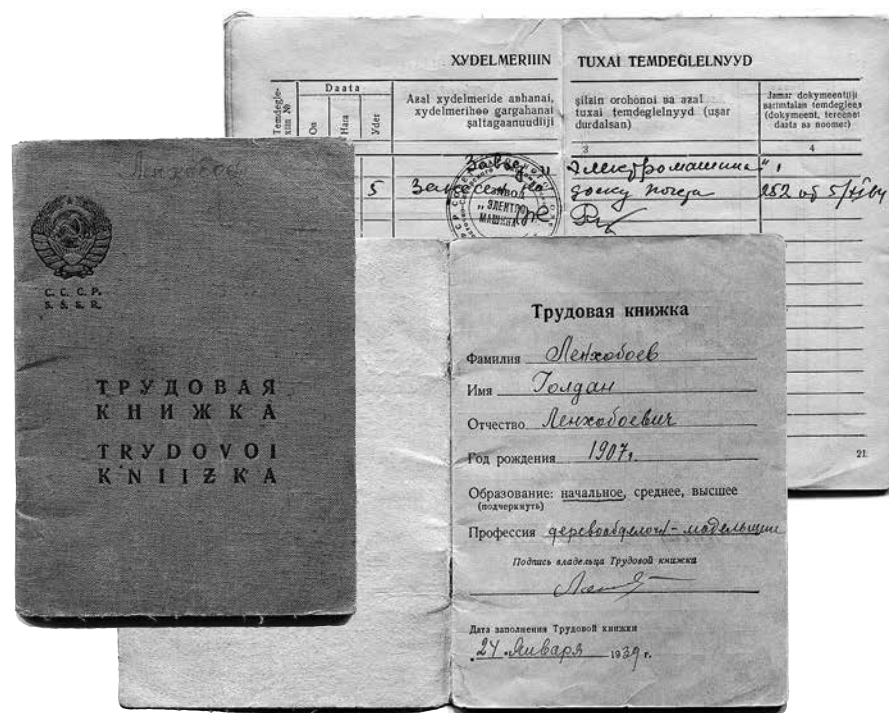 XYDELMERIIIN TUXAI TEMDEGLELNYYD
Temdegle-
xiin №
Daata
On
Hara
Yder
Azal xydelmeride abhanai,
xydelmerihөө gargahanai
şaltagaanuudiiji
şilzin orohonoi ba azal
tuxai temdeglelnyyd (uşar
durdalsan)
Jamar dokymeentiiji
barimtalan temdegleeb
(dokymeent, tereenei
daata ba noomer)
3
4
Завод „Электромашина“,
5 Занесен на доску почета 252 от 5/XI 64
„ЭЛЕКТРО
МАШИНА“
21
Ленхобоев
С. С. С. Р.
S. S. S. R.
ТРУДОВАЯ
КНИЖКА
TRYDOVOI
KNIIƵKA
Трудовая книжка
Фамилия Ленхобоев
Имя Голдан
Отчество Ленхобоевич
Год рождения 1907г.
Образование: начальное, среднее, высшее
(подчеркнуть)
Профессия деревообделоч - модельщик
Подпись владельца Трудовой книжки
Дата заполнения Трудовой книжки
24 Января 1939 г.